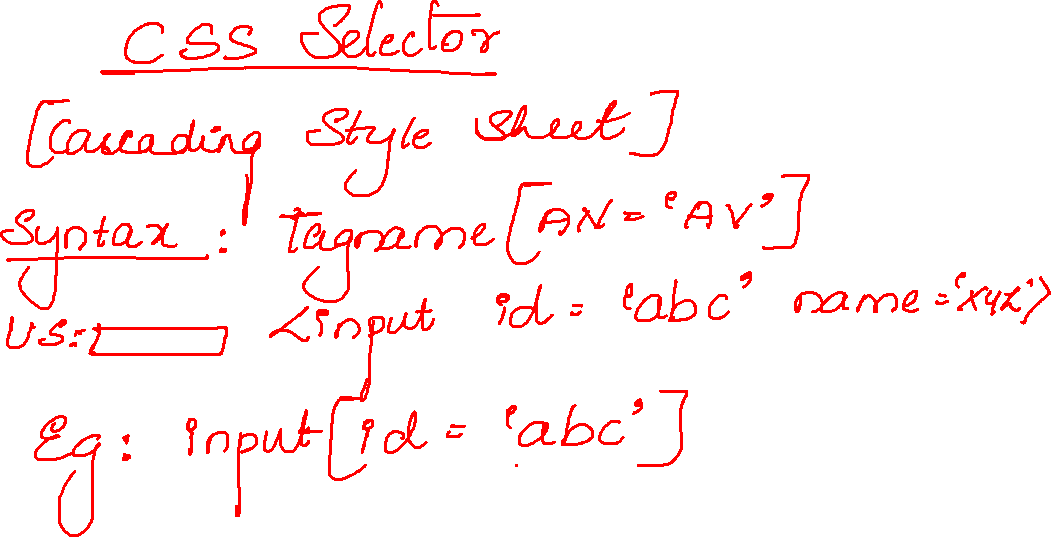 CSS Selector
[Cascading Style Sheet]
Syntax : Tagname[AN='AV']
US: <input id = 'abc' name='xyz'>
Eg: input[id = 'abc']